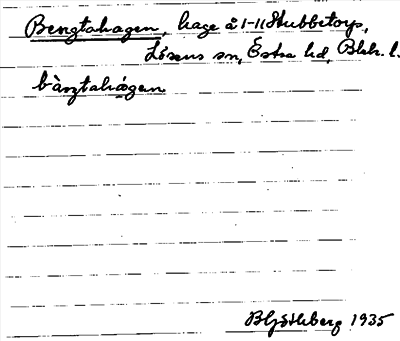 Bengtahagen, hage å 1-11 Stubbetorp,
Lösens sn, Östra hd, Blek. l.
bàŋtahá̱gen
B Hjöthberg 1935